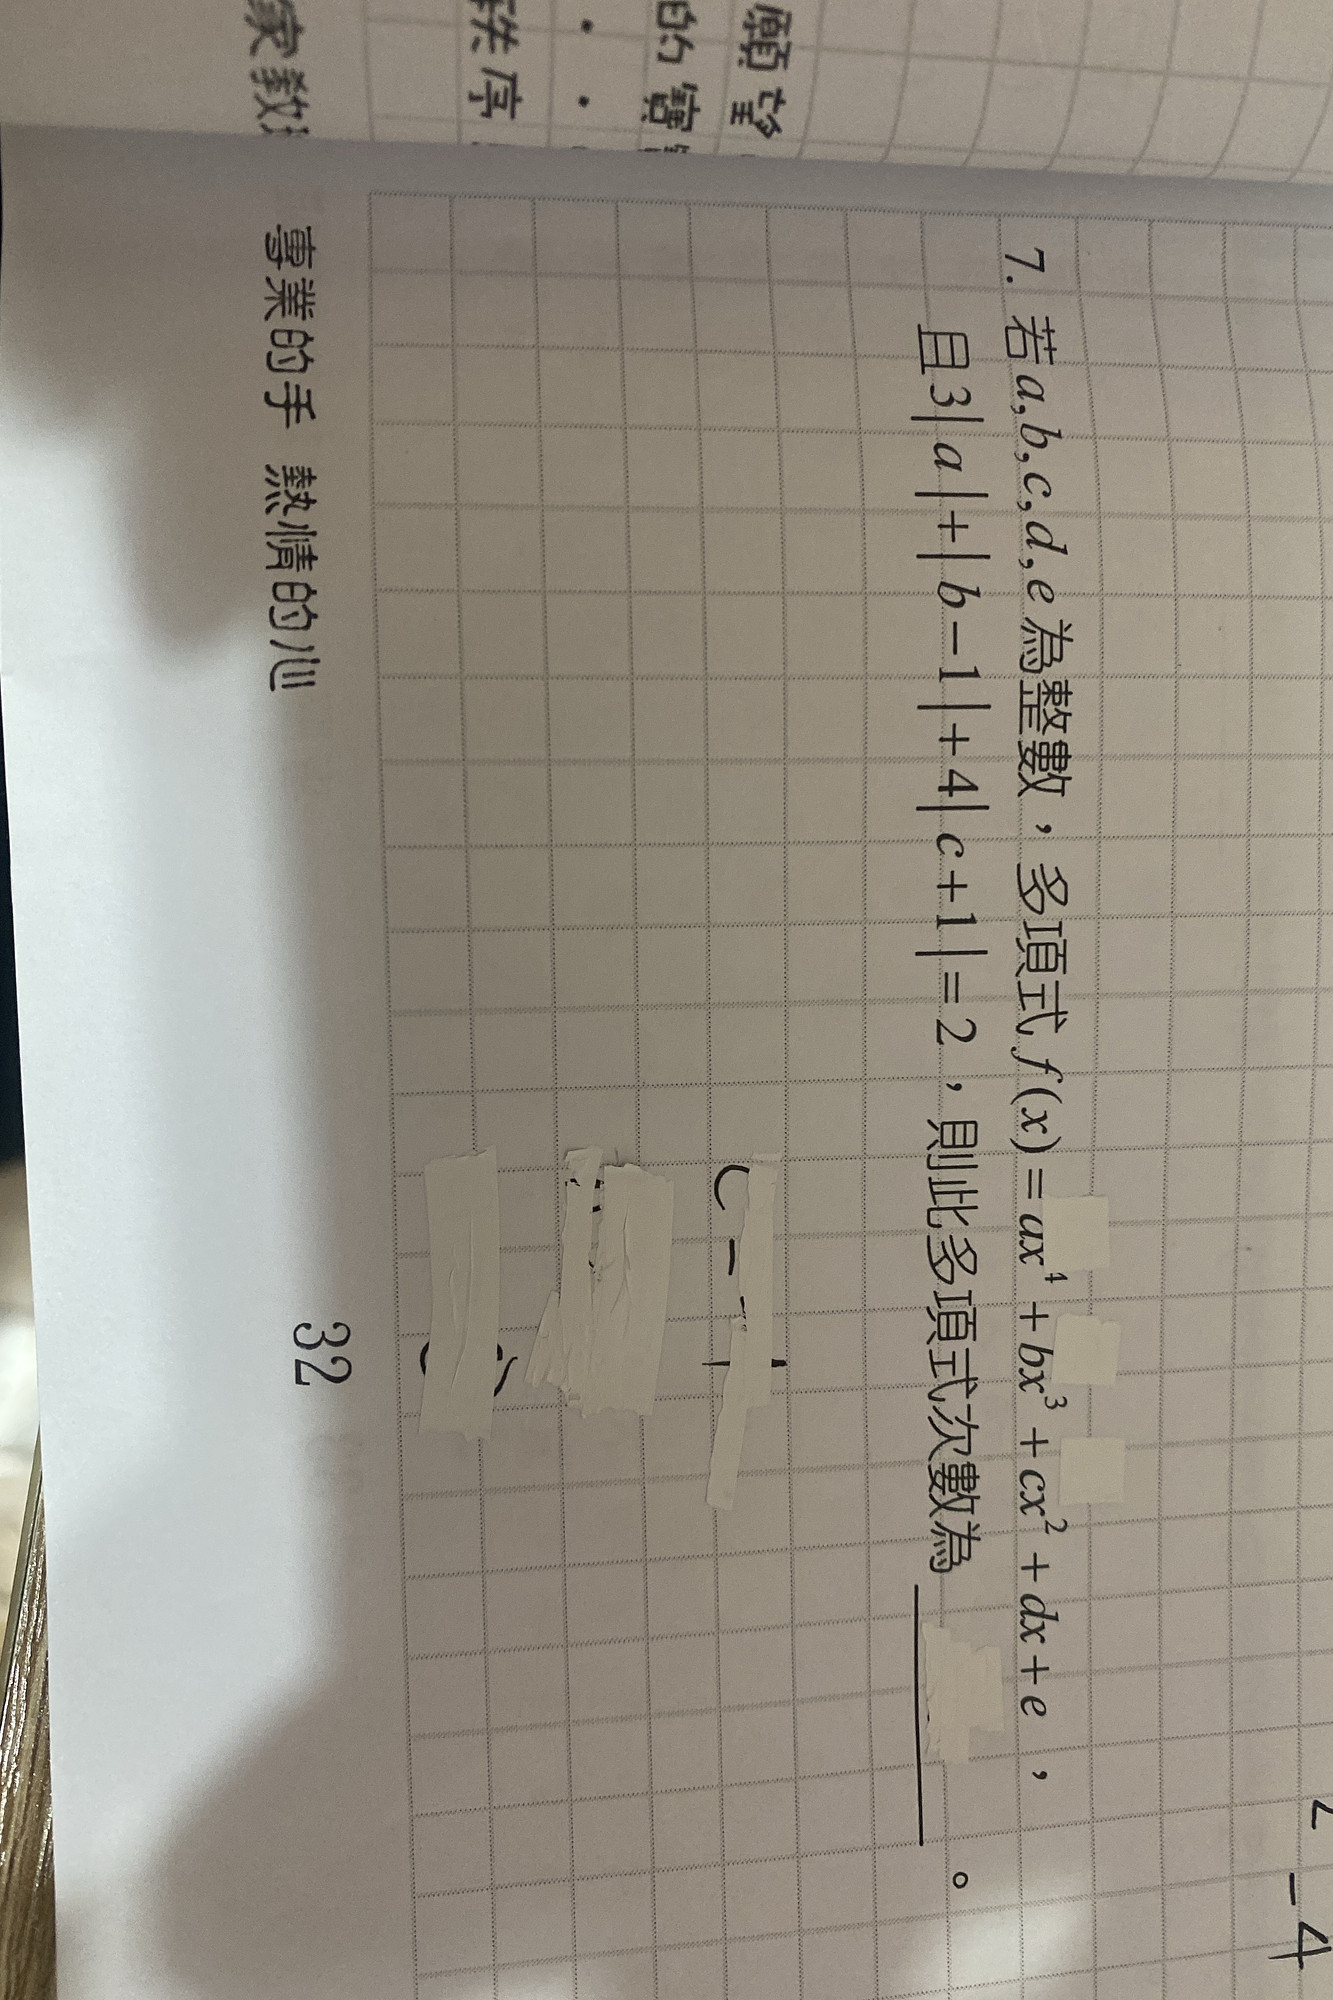 願望
的寶
・・
秩序
家教
7. 若a,b,c,d,e為整數,多項式f(x)=ax⁴+bx³+cx²+dx+e,
且3|a|+|b−1|+4|c+1|=2,則此多項式次數為______。
專業的手 熱情的心
32
−4